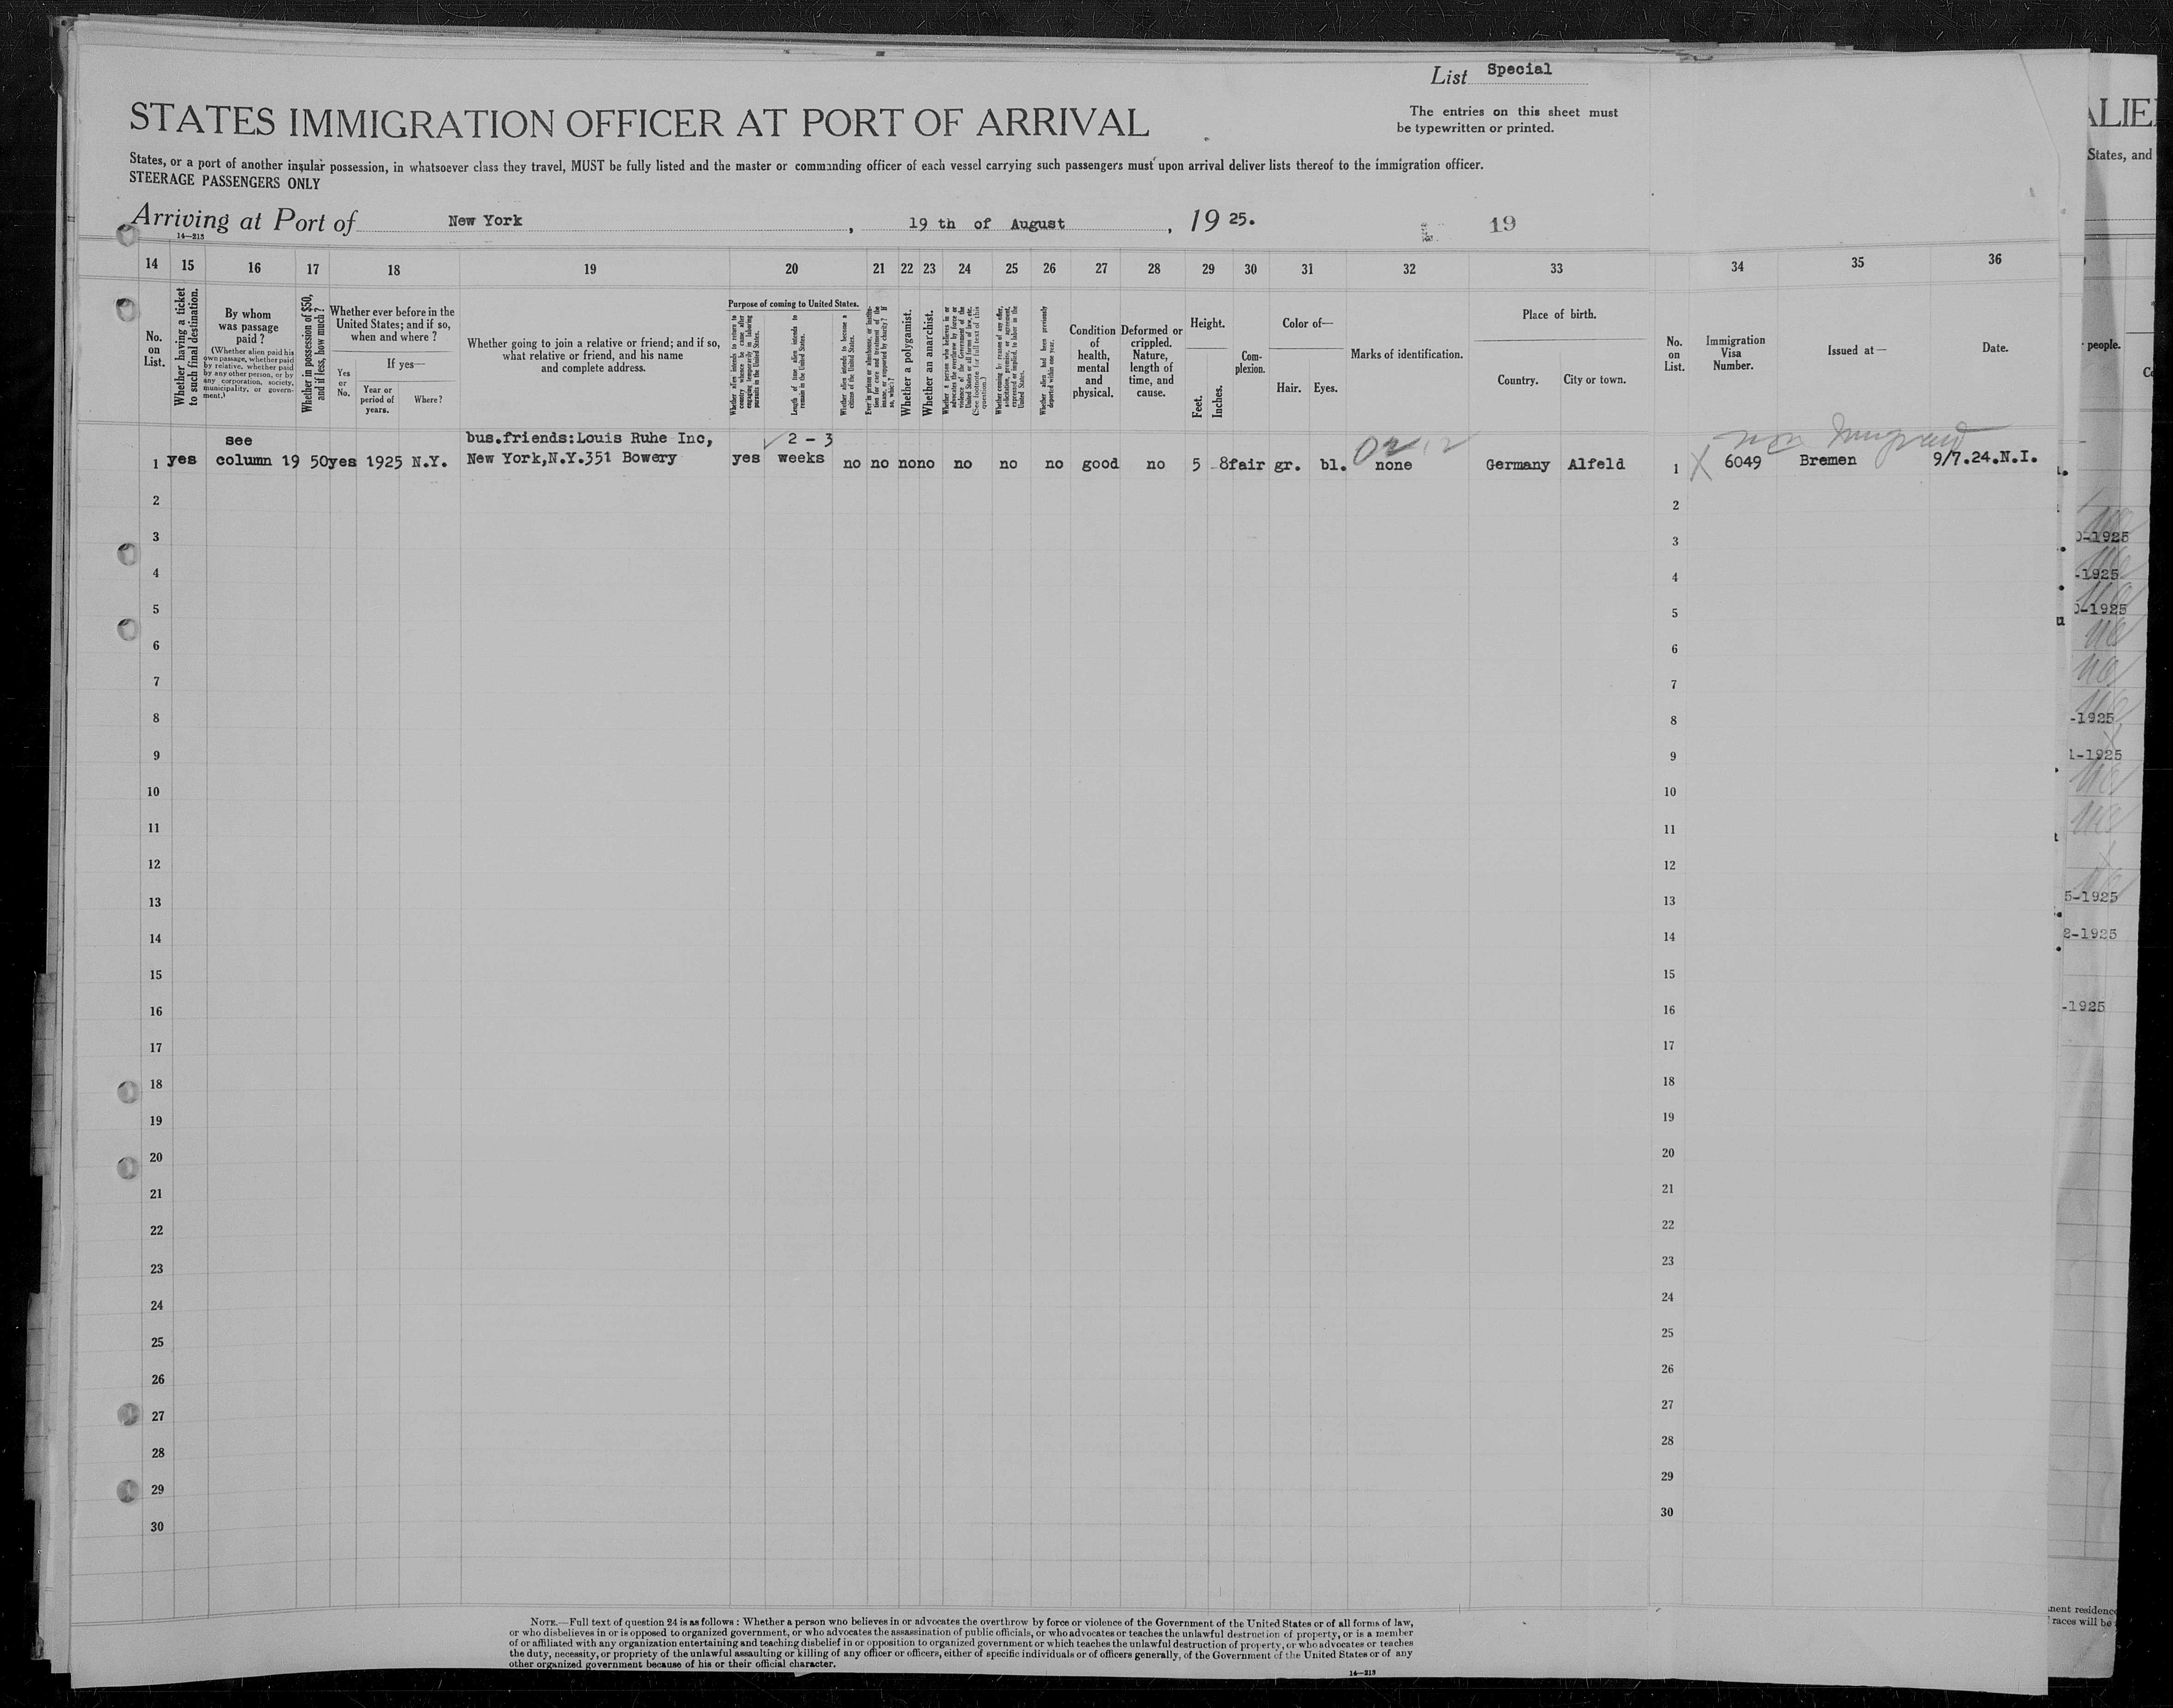 List Special
STATES IMMIGRATION OFFICER AT PORT OF ARRIVAL
The entries on this sheet must
be typewritten or printed.
States, or a port of another insular possession, in whatsoever class they travel, MUST be fully listed and the master or commanding officer of each vessel carrying such passengers must upon arrival deliver lists thereof to the immigration officer.
STEERAGE PASSENGERS ONLY
Arriving at Port of New York, 19 th of August, 19 25. 19
14—213
14 15 16 17 18 19 20 21 22 23 24 25 26 27 28 29 30 31 32 33 34 35 36
No. on List.
Whether having a ticket to such final destination.
By whom was passage paid?
(Whether alien paid his own passage, whether paid by relative, whether paid by any other person, or by any corporation, society, municipality, or government.)
Whether in possession of $50, and if less, how much?
Whether ever before in the United States; and if so, when and where?
Yes or No.
If yes—
Year or period of years.
Where?
Whether going to join a relative or friend; and if so, what relative or friend, and his name and complete address.
Purpose of coming to United States.
Whether alien intends to return to country whence he came after engaging temporarily in laboring pursuits in the United States.
Length of time alien intends to remain in the United States.
Whether alien intends to become a citizen of the United States.
Ever in prison or almshouse, or institution for care and treatment of the insane, or supported by charity? If so, which?
Whether a polygamist.
Whether an anarchist.
Whether a person who believes in or advocates the overthrow by force or violence of the Government of the United States or all forms of law, etc. (See footnote for full text of this question.)
Whether coming by reason of any offer, solicitation, promise, or agreement, expressed or implied, to labor in the United States.
Whether alien had been previously deported within one year.
Condition of health, mental and physical.
Deformed or crippled. Nature, length of time, and cause.
Height.
Feet.
Inches.
Complexion.
Color of—
Hair.
Eyes.
Marks of identification.
Place of birth.
Country.
City or town.
No. on List.
Immigration Visa Number.
Issued at—
Date.
see bus.friends:Louis Ruhe Inc, 2 - 3 non Immigrant
1 yes column 19 50 yes 1925 N.Y. New York,N.Y.351 Bowery yes weeks no no no no no no no good no 5 8 fair gr. bl. none Germany Alfeld 1 6049 Bremen 9/7.24.N.I.
2 2
3 3
4 4
5 5
6 6
7 7
8 8
9 9
10 10
11 11
12 12
13 13
14 14
15 15
16 16
17 17
18 18
19 19
20 20
21 21
22 22
23 23
24 24
25 25
26 26
27 27
28 28
29 29
30 30
NOTE.—Full text of question 24 is as follows: Whether a person who believes in or advocates the overthrow by force or violence of the Government of the United States or of all forms of law,
or who disbelieves in or is opposed to organized government, or who advocates the assassination of public officials, or who advocates or teaches the unlawful destruction of property, or is a member
of or affiliated with any organization entertaining and teaching disbelief in or opposition to organized government or which teaches the unlawful destruction of property, or who advocates or teaches
the duty, necessity, or propriety of the unlawful assaulting or killing of any officer or officers, either of specific individuals or of officers generally, of the Government of the United States or of any
other organized government because of his or their official character.
14—213
ALIE
States, and
people.
-1925
-1925
-1925
-1925
1-1925
5-1925
2-1925
-1925
nent residence
races will be